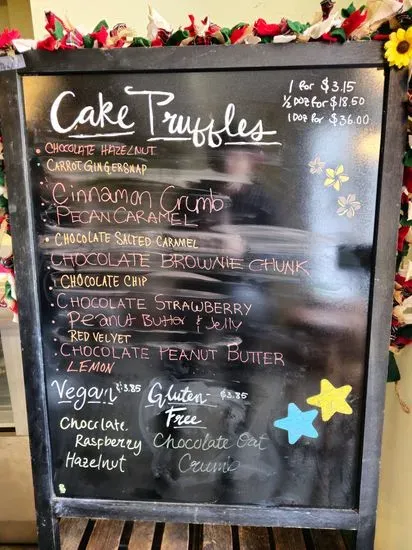 Cake Truffles
1 for $3.15
½ Doz for $18.50
1 Doz for $36.00
• CHOCOLATE HAZELNUT
CARROT GINGERSNAP
• Cinnamon Crumb
PECAN CARAMEL
• CHOCOLATE SALTED CARAMEL
CHOCOLATE BROWNIE CHUNK
CHOCOLATE CHIP
• CHOCOLATE STRAWBERRY
Peanut Butter & Jelly
RED VELVET
• CHOCOLATE PEANUT BUTTER
LEMON
Vegan $3.85
Chocolate
Raspberry
Hazelnut
Gluten- $3.85
Free
Chocolate Oat
Crumb